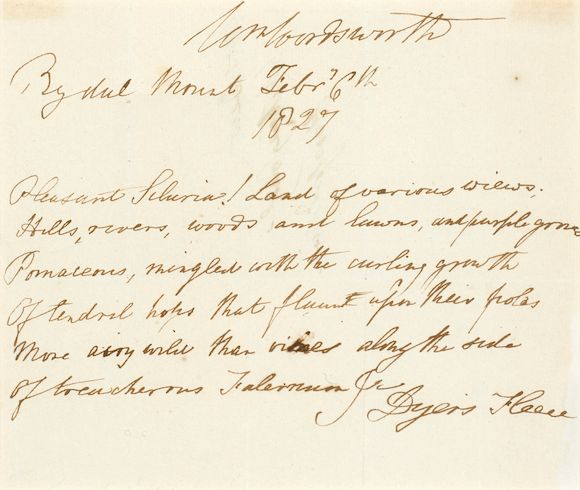 Wm Wordsworth
Rydal Mount Febry 6th
1827
Pleasant Siluria! Land of various views,
Hills, rivers, woods and lawns, and purple groves
Pomaceous, mingled with the curling growth
Of tendril hops that flaunt upon their poles
More airy wild than vines along the side
Of treacherous Falernum
Dyer's Fleece